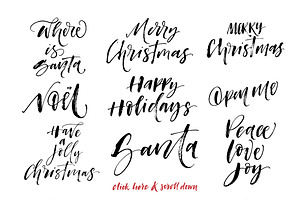 Where
is
Santa
Merry
Christmas
MERRY
Christmas
Noël
Happy
Holidays
@pm me
Have
a
jolly
Christmas
Santa
Peace
love
joy
click here & scroll down